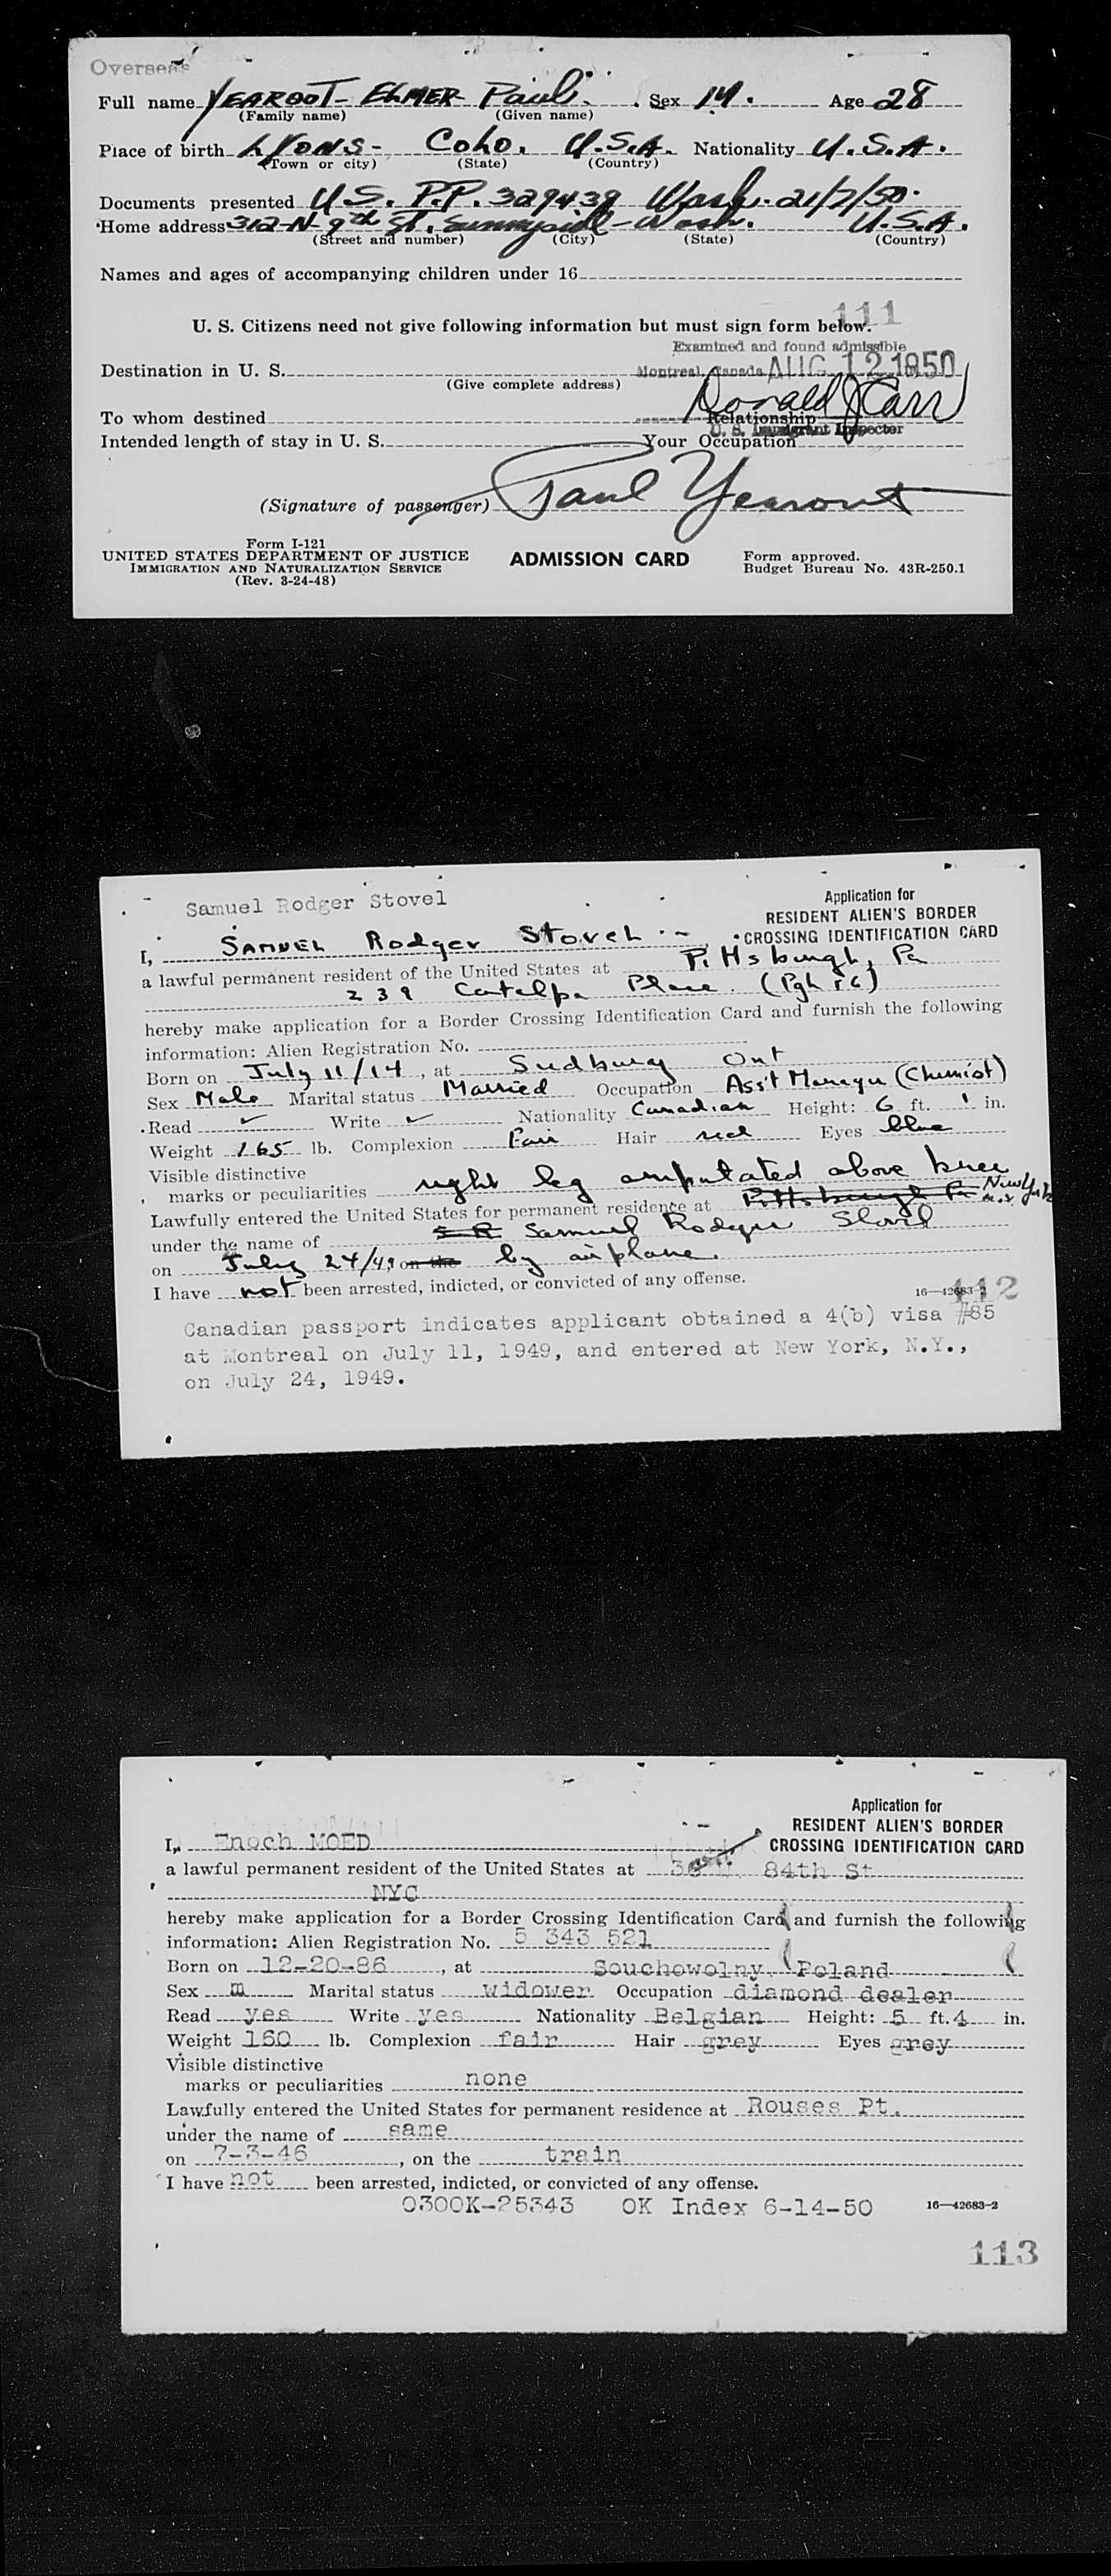 Overseas
Full name YEAROOT- ELMER Paul. Sex M. Age 28
(Family name) (Given name)
Place of birth LYONS- Colo. U.S.A. Nationality U.S.A.
(Town or city) (State) (Country)
Documents presented U.S. P.P. 329439 Wash. 21/7/50.
Home address 312-N-9th St. Sunnyside-Wash. U.S.A.
(Street and number) (City) (State) (Country)
Names and ages of accompanying children under 16
111
U. S. Citizens need not give following information but must sign form below.
Examined and found admissible
Destination in U. S. Montreal, Canada AUG 12 1950
(Give complete address)
Donald J Carr
To whom destined Relationship
U. S. Immigrant Inspector
Intended length of stay in U. S. Your Occupation
(Signature of passenger) Paul
Form I-121
UNITED STATES DEPARTMENT OF JUSTICE
IMMIGRATION AND NATURALIZATION SERVICE
(Rev. 3-24-48)
ADMISSION CARD
Form approved.
Budget Bureau No. 43R-250.1
Samuel Rodger Stovel
Application for
RESIDENT ALIEN'S BORDER
CROSSING IDENTIFICATION CARD
I, SAMUEL Rodger Stovel
a lawful permanent resident of the United States at Pittsburgh, Pa
239 Catalpa Place. (Pgh 26)
hereby make application for a Border Crossing Identification Card and furnish the following
information: Alien Registration No.
Born on July 11/14, at Sudbury Ont
Sex Male Marital status Married Occupation Ass't Manager (Chemist)
Read ✓ Write ✓ Nationality Canadian Height: 6 ft. 1 in.
Weight 165 lb. Complexion Fair Hair red Eyes blue
Visible distinctive
marks or peculiarities right leg amputated above knee
Lawfully entered the United States for permanent residence at Pittsburgh Pa New York
under the name of S R Samuel Rodger Stovel
on July 24/49, on the by airplane.
I have not been arrested, indicted, or convicted of any offense.
16—42683-2 112
Canadian passport indicates applicant obtained a 4(b) visa #85
at Montreal on July 11, 1949, and entered at New York, N.Y.,
on July 24, 1949.
Application for
RESIDENT ALIEN'S BORDER
CROSSING IDENTIFICATION CARD
I, Enoch MOED
a lawful permanent resident of the United States at 84th St
NYC
hereby make application for a Border Crossing Identification Card and furnish the following
information: Alien Registration No. 5 343 521
Born on 12-20-86, at Souchowolny, Poland
Sex m Marital status widower Occupation diamond dealer
Read yes Write yes Nationality Belgian Height: 5 ft. 4 in.
Weight 160 lb. Complexion fair Hair grey Eyes grey
Visible distinctive
marks or peculiarities none
Lawfully entered the United States for permanent residence at Rouses Pt.
under the name of same
on 7-3-46, on the train
I have not been arrested, indicted, or convicted of any offense.
0300K-25343 OK Index 6-14-50 16—42683-2
113